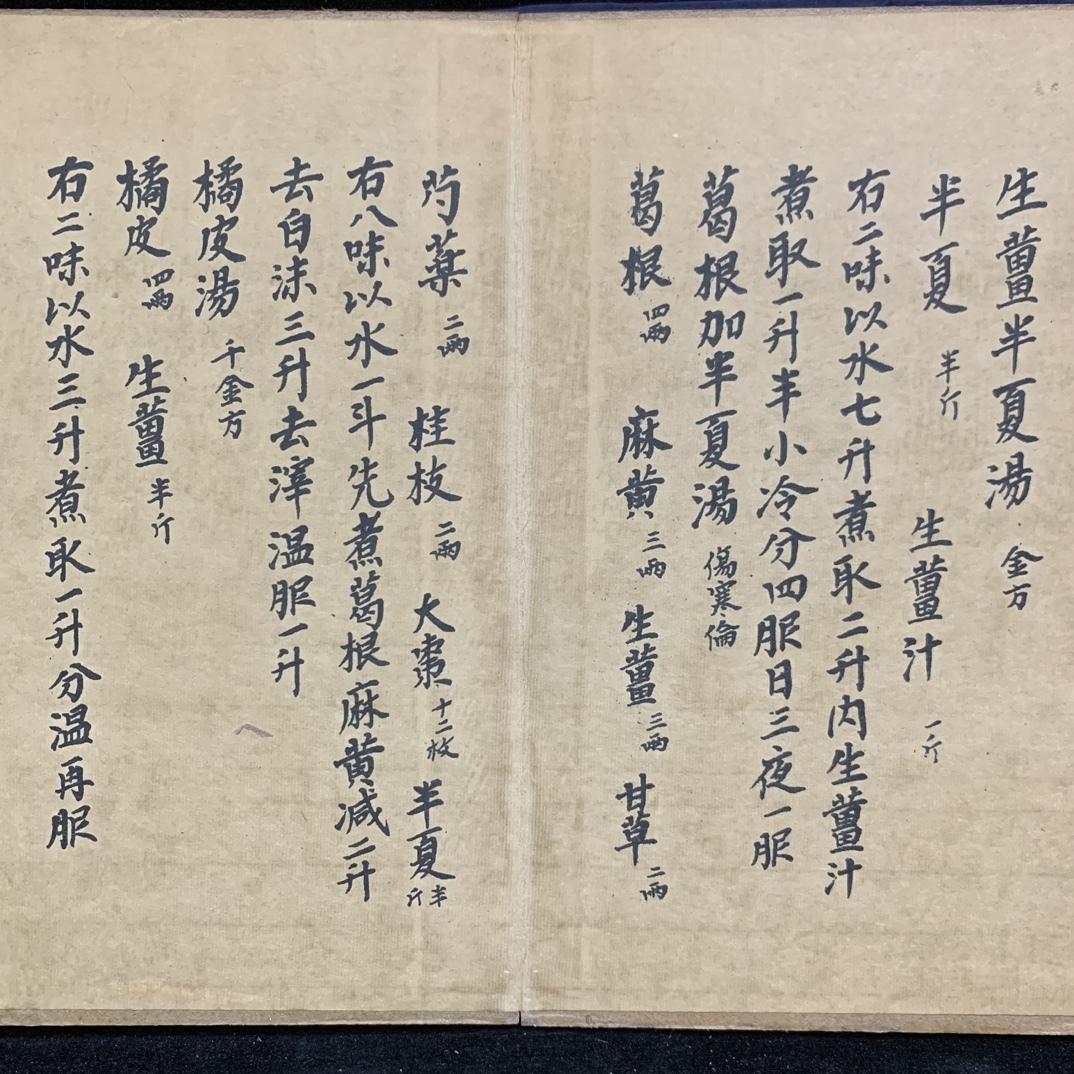 生薑半夏湯 金方
半夏 半斤 生薑汁 一斤
右二味以水七升煮取二升内生薑汁
煮取一升半小冷分四服日三夜一服
葛根加半夏湯 傷寒倫
葛根 四兩 麻黄 三兩 生薑 三兩 甘草 二兩
芍薬 二兩 桂枝 二兩 大棗 十二枚 半夏 半斤
右八味以水一斗先煮葛根麻黄減二升
去白沫三升去滓温服一升
橘皮湯 千金方
橘皮 四兩 生薑 半斤
右二味以水三升煮取一升分温再服